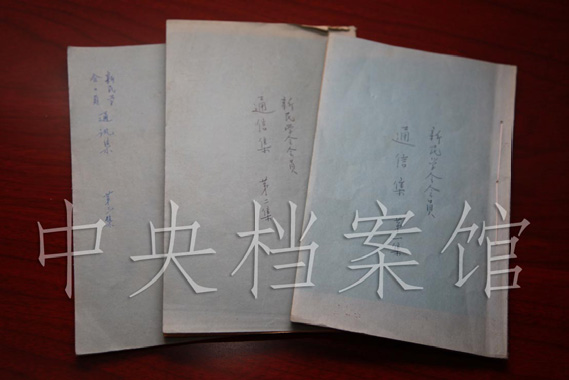 新民学会会员
通信集 第集
新民学会会员
通信集 第二集
新民学
会会員
通訊集 第集
中央档案馆